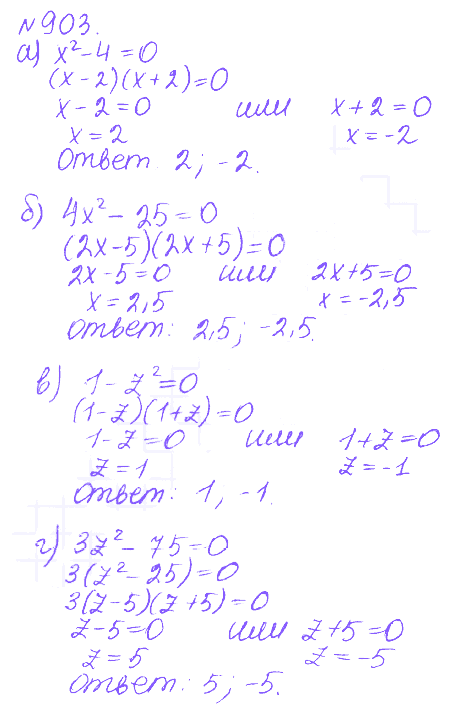 №903.
а) x²-4=0
(x-2)(x+2)=0
x-2=0 или x+2=0
x=2 x=-2
Ответ 2; -2.
б) 4x²-25=0
(2x-5)(2x+5)=0
2x-5=0 или 2x+5=0
x=2,5 x=-2,5
Ответ: 2,5; -2,5.
в) 1-z²=0
(1-z)(1+z)=0
1-z=0 или 1+z=0
z=1 z=-1
Ответ: 1, -1.
г) 3z²-75=0
3(z²-25)=0
3(z-5)(z+5)=0
z-5=0 или z+5=0
z=5 z=-5
Ответ: 5; -5.